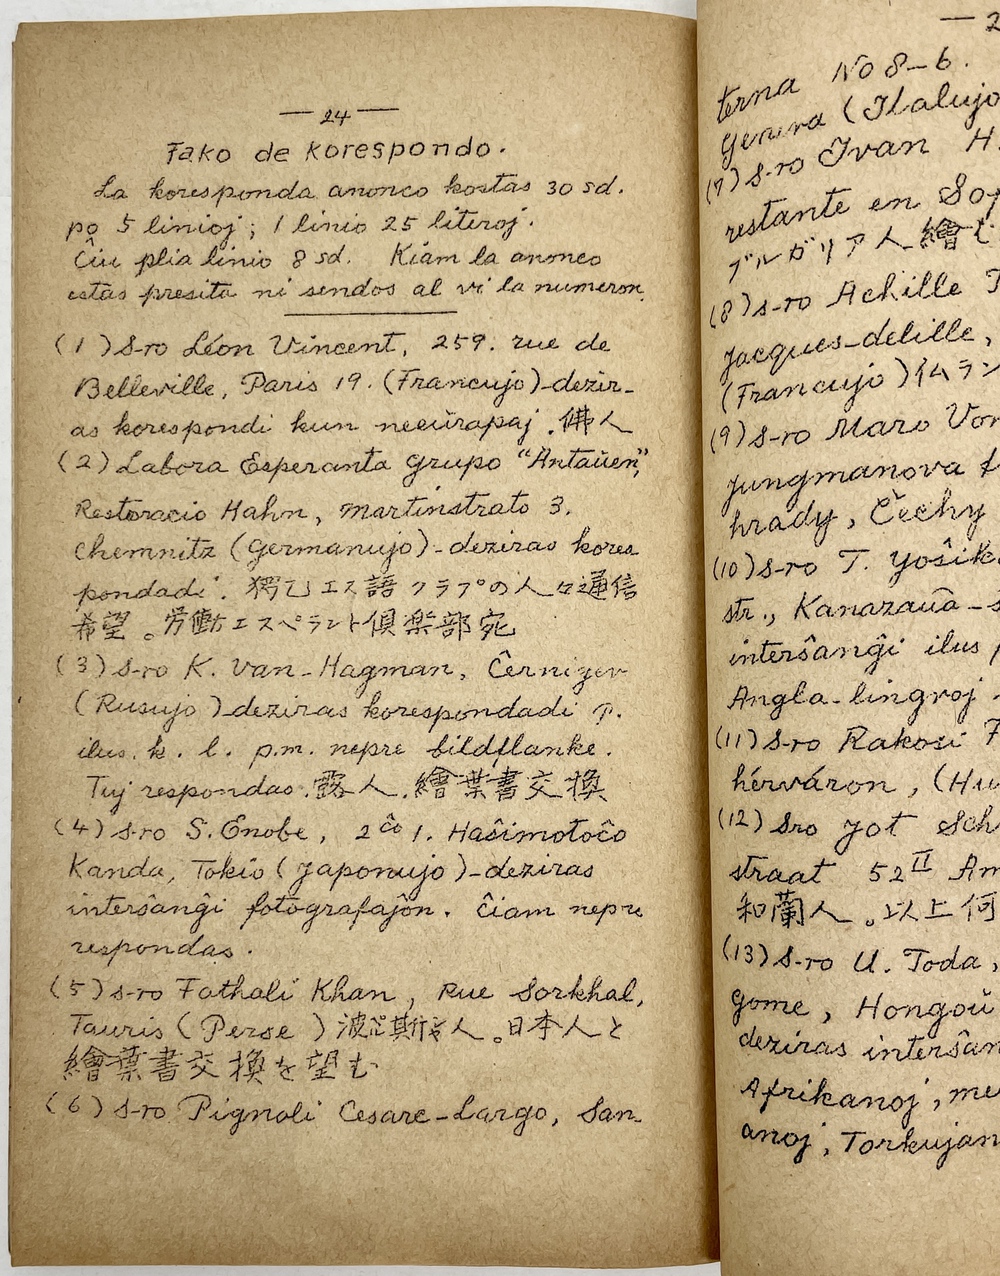 — 24 —
Fako de Korespondo.
La koresponda anonco kostas 30 sd.
po 5 linioj ; 1 linio 25 literoj.
Ĉiu plia linio 8 sd. Kiam la anonco
estas presita ni sendos al vi la numeron.
(1) S-ro Léon Vincent, 259. rue de
Belleville, Paris 19. (Francujo)-dezir-
as korespondi kun neeŭrapaj. 佛人
(2) Labora Esperanta Grupo “Antaŭen”,
Restoracio Hahn, Martinstrato 3.
Chemnitz (Germanujo)-deziras kores
pondadi. 獨乙エス語クラブの人々通信
希望。労働エスペラント倶楽部宛
(3) S-ro K. Van-Hagman, Ĉernigev
(Rusujo)-deziras korespondadi p.
ilus. k. l. p.m. nepre bildflanke.
Tuj respondas. 露人. 繪葉書交換
(4) S-ro S. Enobe, 2ĉo 1. Haŝimotoĉo
Kanda, Tokio (Japonujo)-deziras
interŝanĝi fotografaĵon. Ĉiam nepre
respondas.
(5) S-ro Fathali Khan, Rue Sorkhal,
Tauris (Perse) 波斯人。日本人と
繪葉書交換を望む
(6) S-ro Pignoli Cesare-Largo, San-
— 2
terna No 8-6.
Genova (Italujo
(7) S-ro Ivan H.
restante en Sof
ブルガリア人 繪
(8) S-ro Achille
Jacques-delille,
(Francujo) 仏ラン
(9) S-ro Maro Von
Jungmanova
hrady, Čechy
(10) S-ro T. Yoŝik
str., Kanazaŭa-s
interŝanĝi ilus
Angla-lingvoj
(11) S-ro Rakosi
hérváron, (Hu
(12) Sro Jot Sch
straat 52II Am
和蘭人。以上何
(13) S-ro U. Toda,
Gome, Hongoŭ
deziras interŝan
Afrikanoj, me
anoj, Torkujan